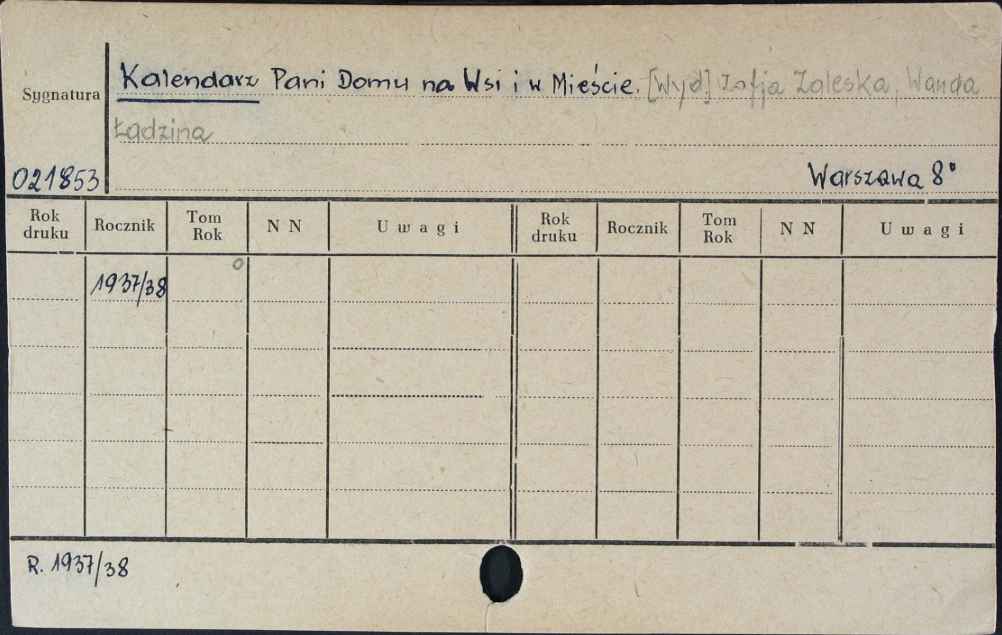 Kalendarz Pani Domu na Wsi i w Mieście. [Wyd] Zofja Zaleska, Wanda
Sygnatura
Łądzina
021853
Warszawa 8°
Rok druku Rocznik Tom Rok N N Uwagi Rok druku Rocznik Tom Rok N N Uwagi
1937/38
R. 1937/38